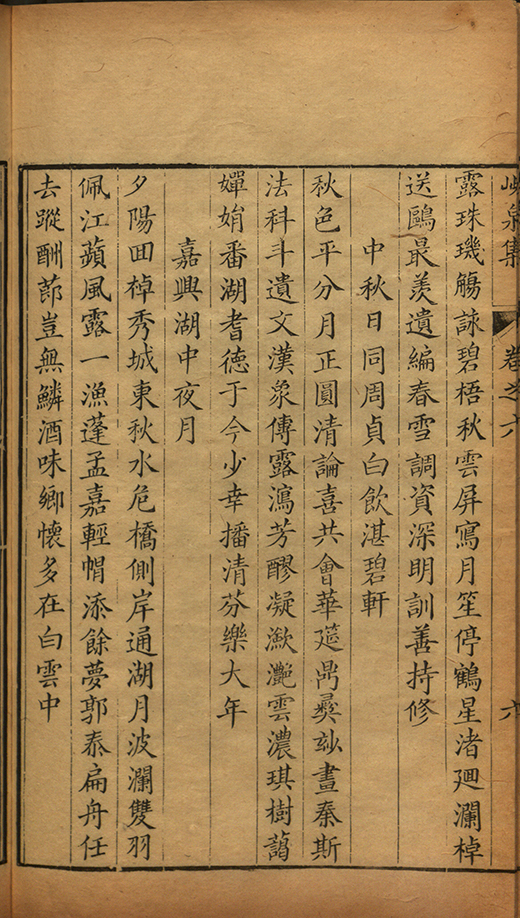 峴泉集 卷之六 六
露珠璣觴詠碧梧秋雲屏寫月笙停鶴星渚迴瀾棹
送鷗最羨遺編春雪調資深明訓善持修
中秋日同周貞白飲湛碧軒
秋色平分月正圓清論喜共會華筵鼎彛玅畫秦斯
法科斗遺文漢𧰼傳露瀉芳醪凝瀲灔雲濃琪樹藹
嬋娟番湖耆德于今少幸播清芬樂大年
嘉興湖中夜月
夕陽回棹秀城東秋水危橋側岸通湖月波瀾雙羽
佩江蘋風露一漁蓬孟嘉輕帽添餘夢郭泰扁舟任
去蹤酬莭豈無鱗酒味鄉懷多在白雲中